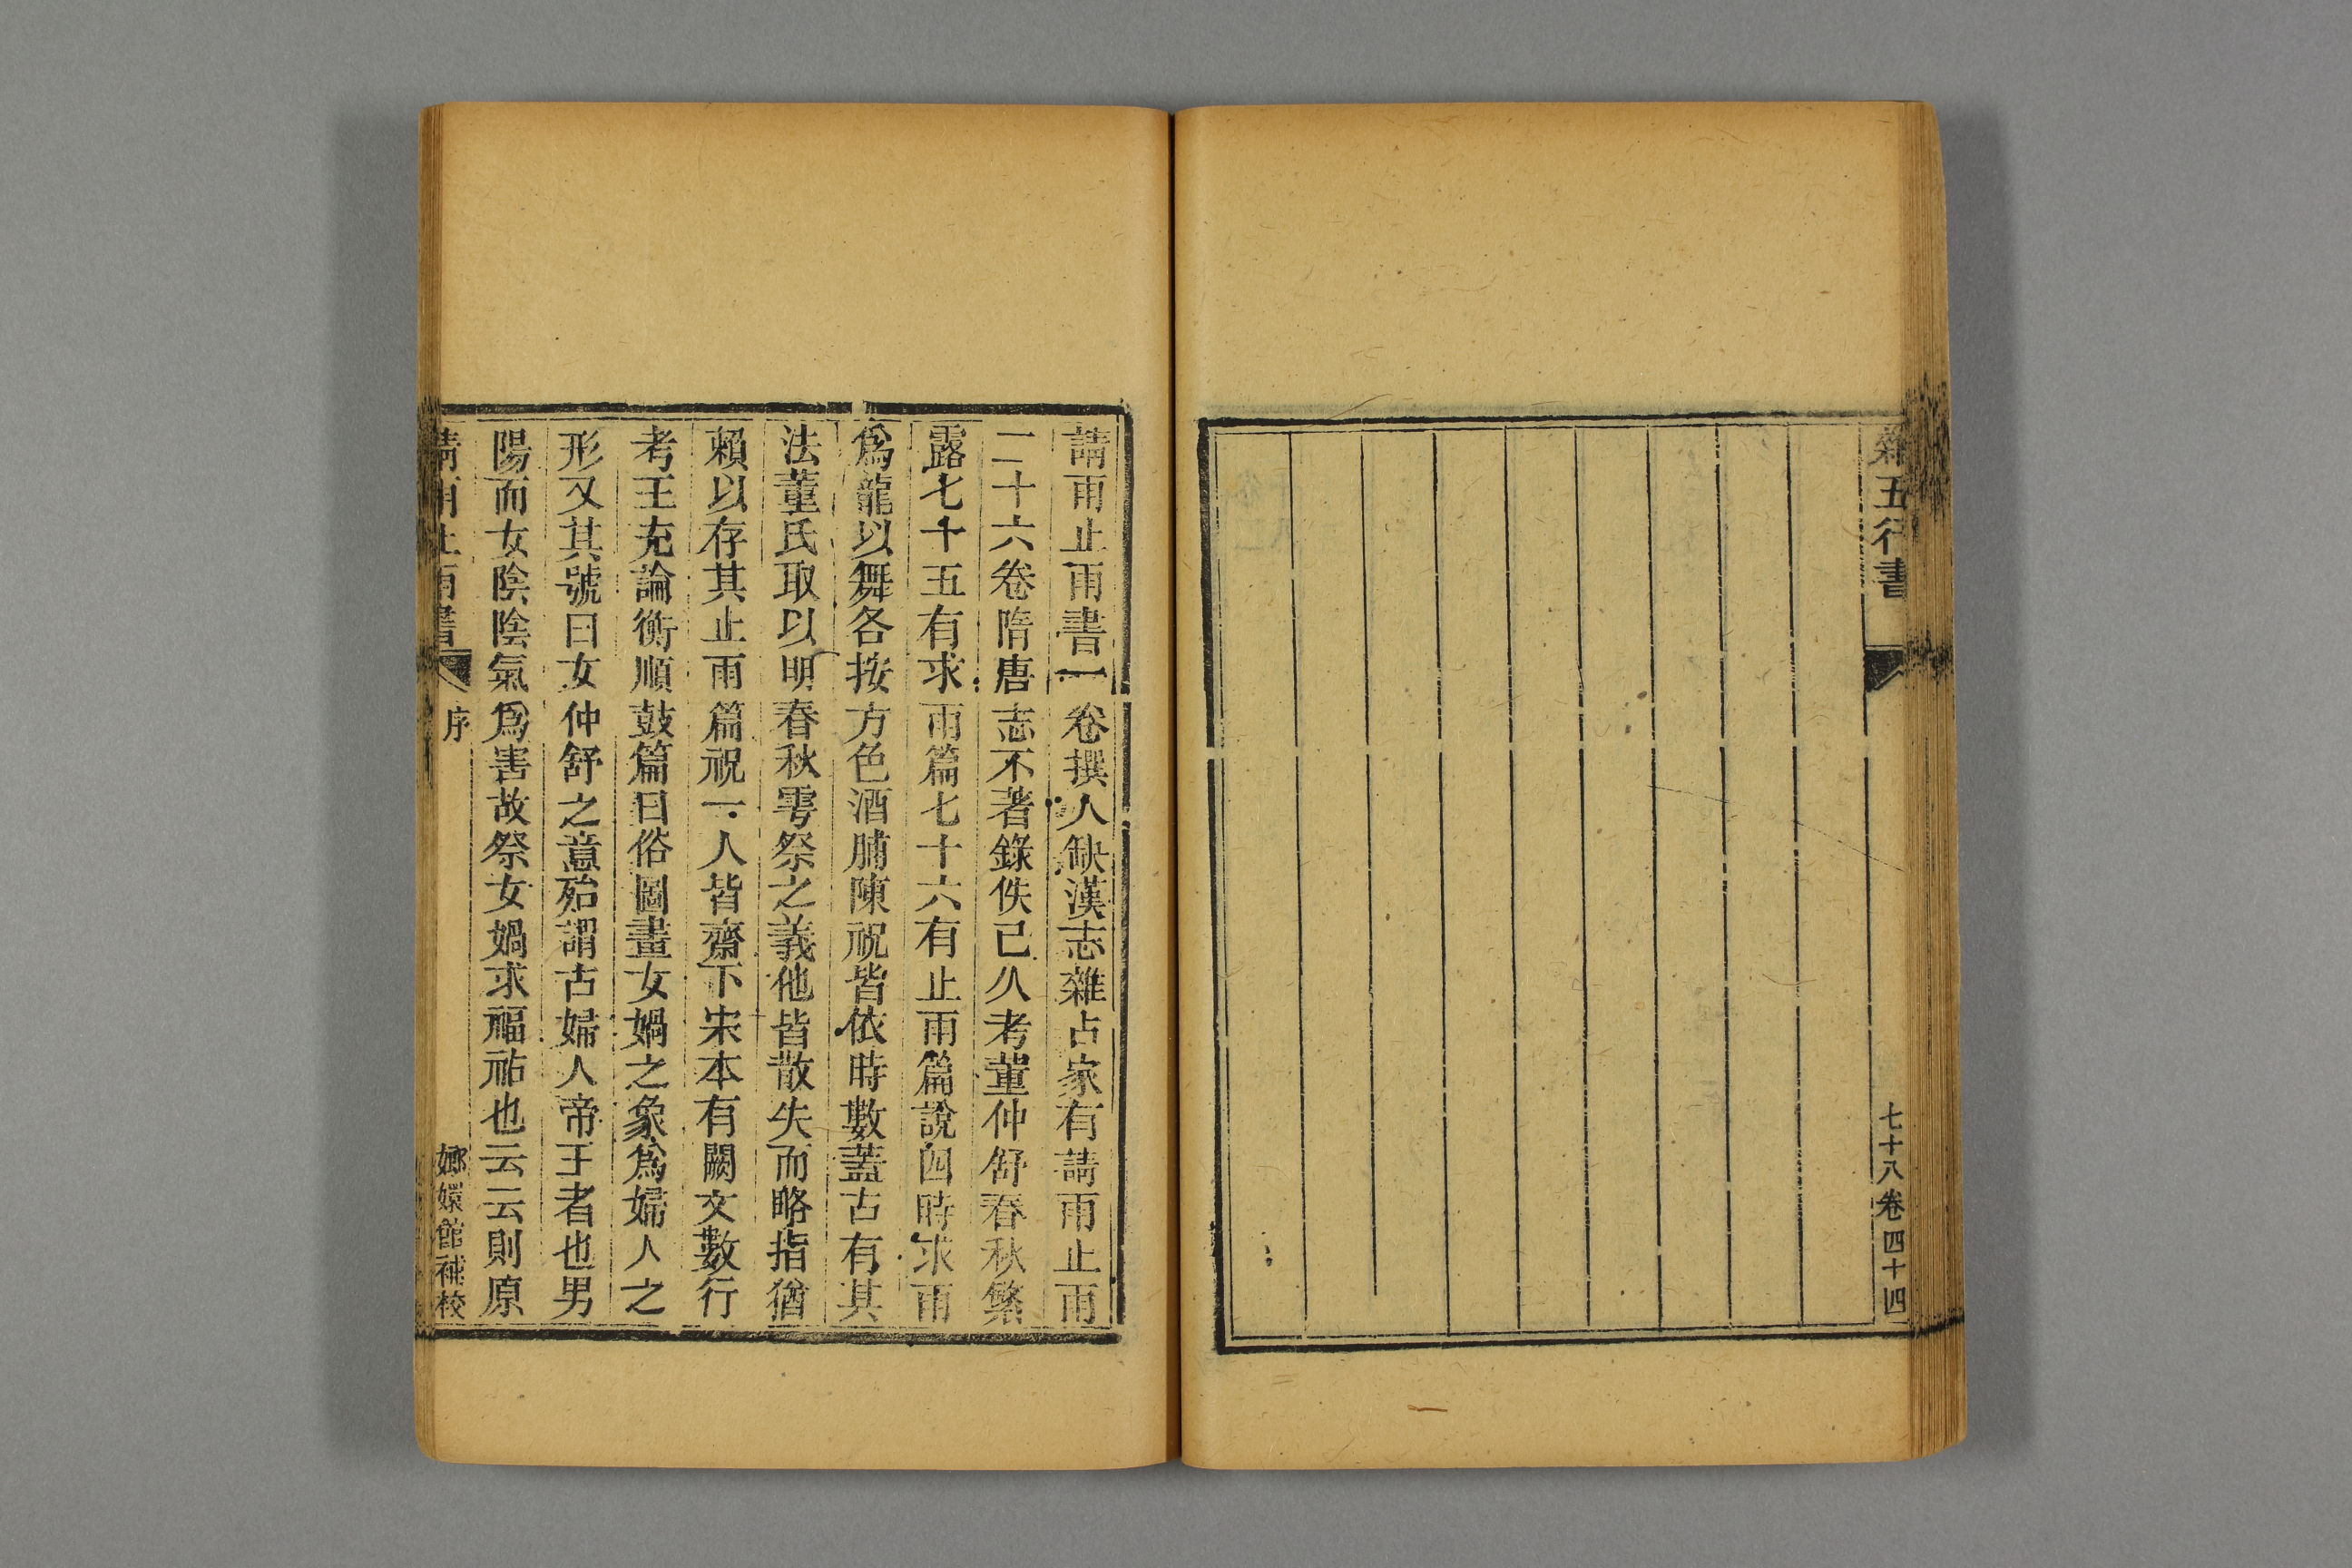 雜五行書
七十八卷四十四
請雨止雨書一卷撰人缺漢志雜占家有請雨止雨
二十六卷隋唐志不著錄佚已久考董仲舒春秋繁
露七十五有求雨篇七十六有止雨篇說四時求雨
爲龍以舞各按方色酒脯陳祝皆依時數蓋古有其
法董氏取以明春秋雩祭之義他皆散失而略指猶
賴以存其止雨篇祝一人皆齋下宋本有闕文數行
考王充論衡順鼓篇曰俗圖畫女媧之象爲婦人之
形又其號曰女仲舒之意殆謂古婦人帝王者也男
陽而女陰陰氣爲害故祭女媧求福祐也云云則原
請雨止雨書
序
嫏嬛館補校